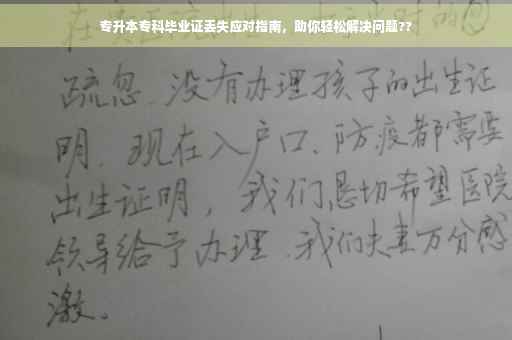 专升本专科毕业证丢失应对指南，助你轻松解决问题??
疏忽、没有办理孩子的出生证
明、现在入户口、防疫都需要
出生证明，我们恳切希望医院
领导给予办理、我们夫妻万分感
激。